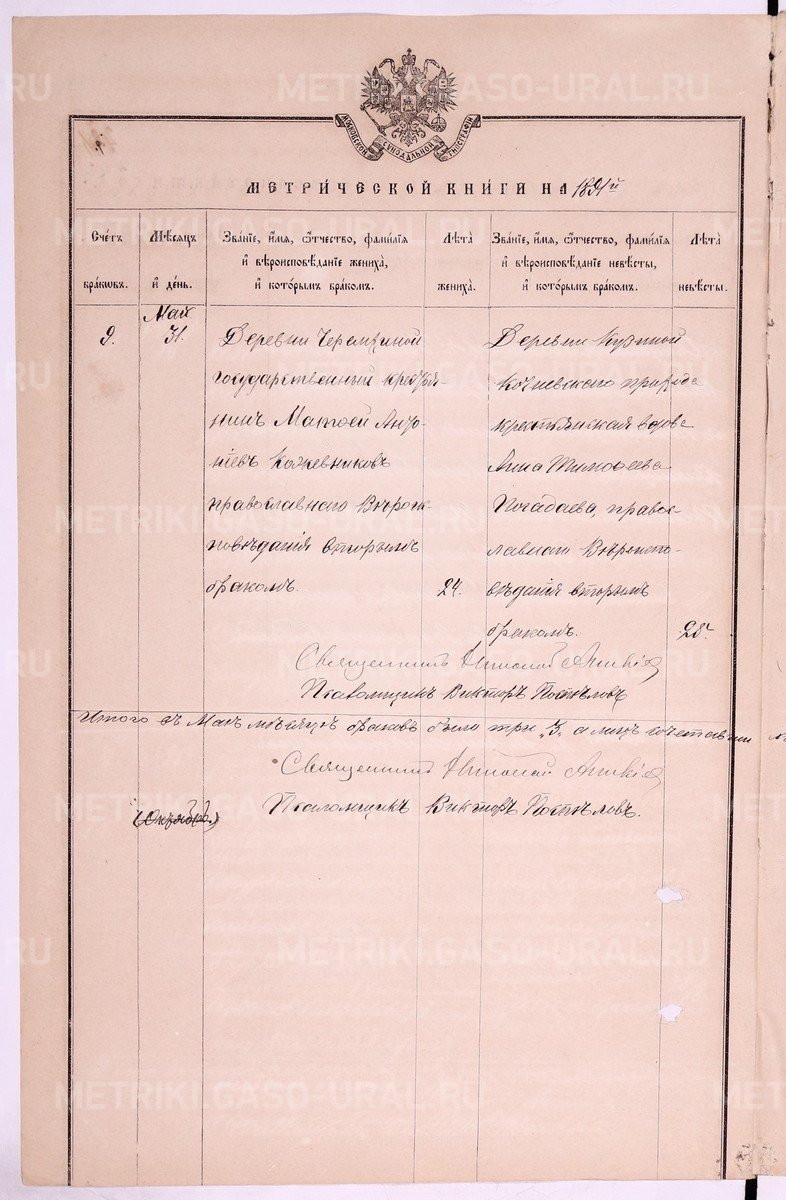 МОСКОВСКОЙ СѴНОДАЛЬНОЙ ТИПОГРАФІИ
МЕТРИ́ЧЕСКОЙ КНИ́ГИ НА 1891й
Сче́тъ бра́кѡвъ.
Мѣ́сяцъ и҆ де́нь.
Зва́нїе, и҆́мя, ѻ҆́тчество, фами́лїя
и҆ вѣроисповѣ́данїе жениха̀,
и҆ кото́рымъ бра́комъ.
Лѣ́та жениха̀.
Зва́нїе, и҆́мя, ѻ҆́тчество, фами́лїя
и҆ вѣроисповѣ́данїе невѣ́сты,
и҆ кото́рымъ бра́комъ.
Лѣ́та невѣ́сты.
9.
Май
31.
Деревни Черемхиной
государственный крестья-
нинъ Матѳей Анто-
ніевъ Кожевниковъ
православнаго Вѣроис-
повѣданія вторымъ
бракомъ.
24.
Деревни
прихода
крестьянская вдова
Анна Тимофеева
Погадаева, право-
славнаго Вѣроиспо-
вѣданія вторымъ
бракомъ.
Священникъ
Псаломщикъ Викторъ Поспѣловъ
Итого въ Маѣ мѣсяцѣ браковъ было три „3„ а лицъ
Священникъ
Псаломщикъ Викторъ Поспѣловъ.
METRIKI.GASO-URAL.RU